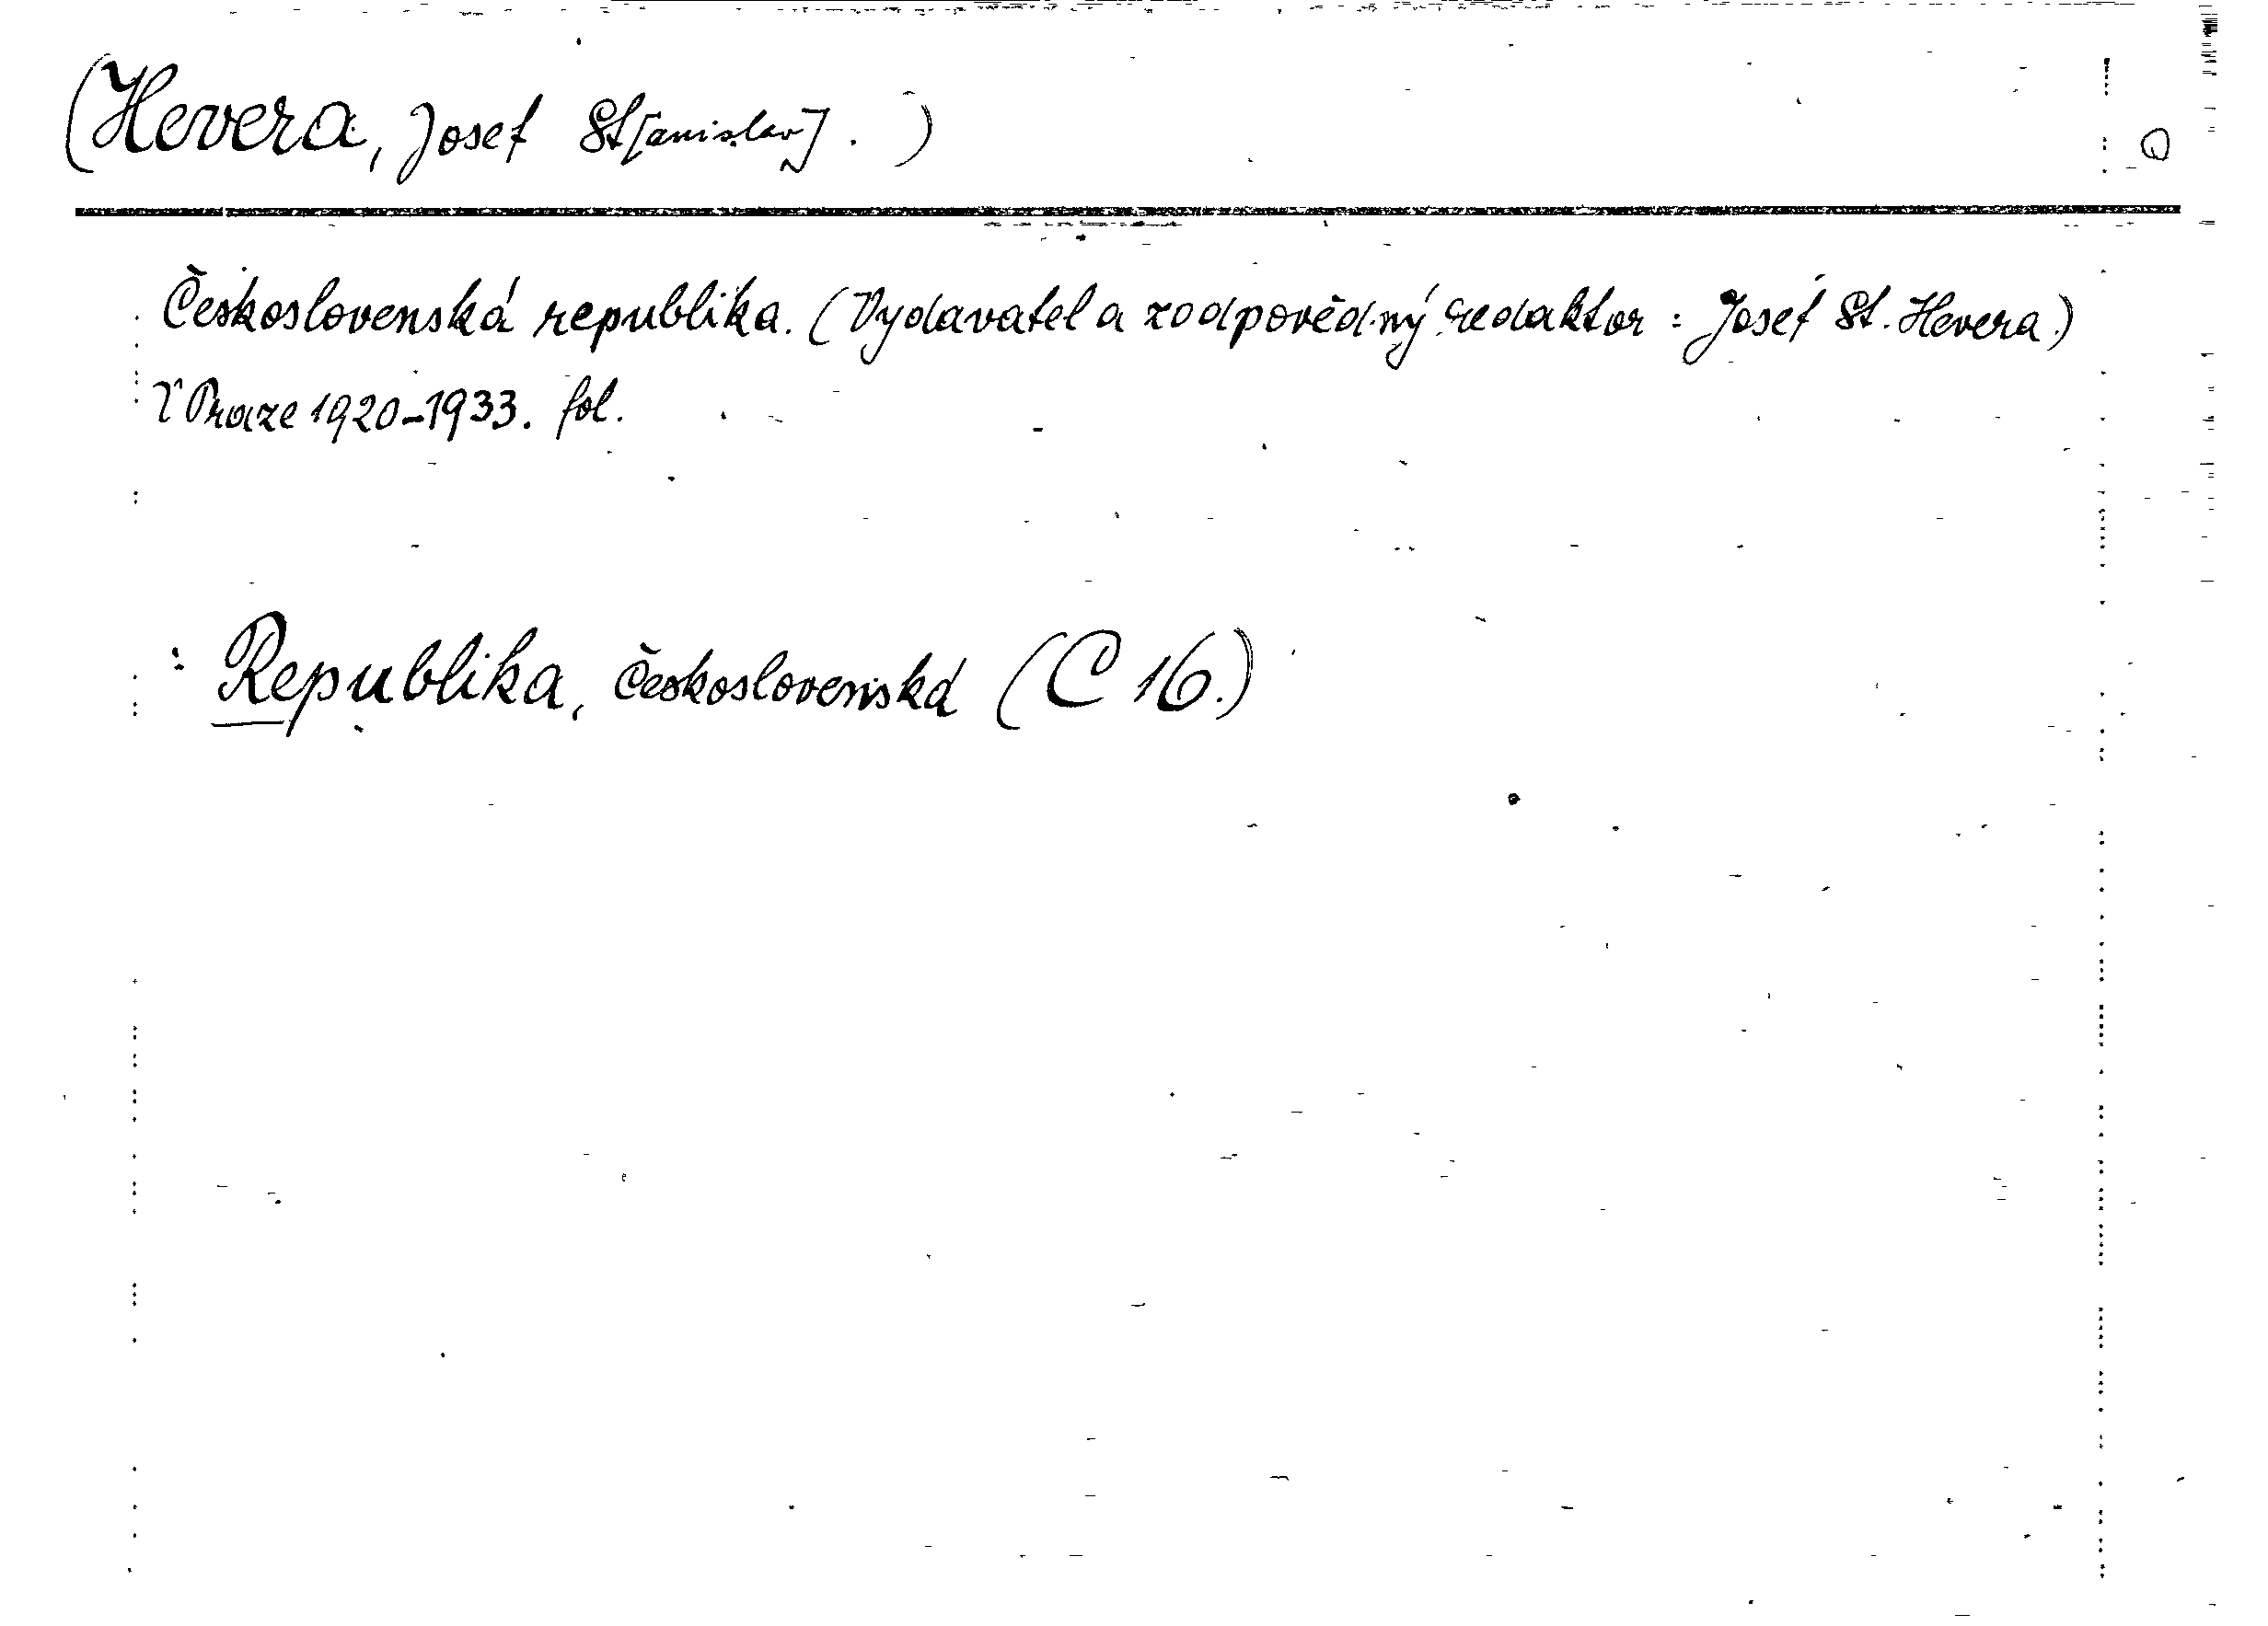 (Hevera, Josef St[anislav]. ) Q
Československá republika. (Vydavatel a zodpovědný redaktor : Josef St. Hevera)
V Praze 1920-1933. fol.
: Republika, československá (C 16.)